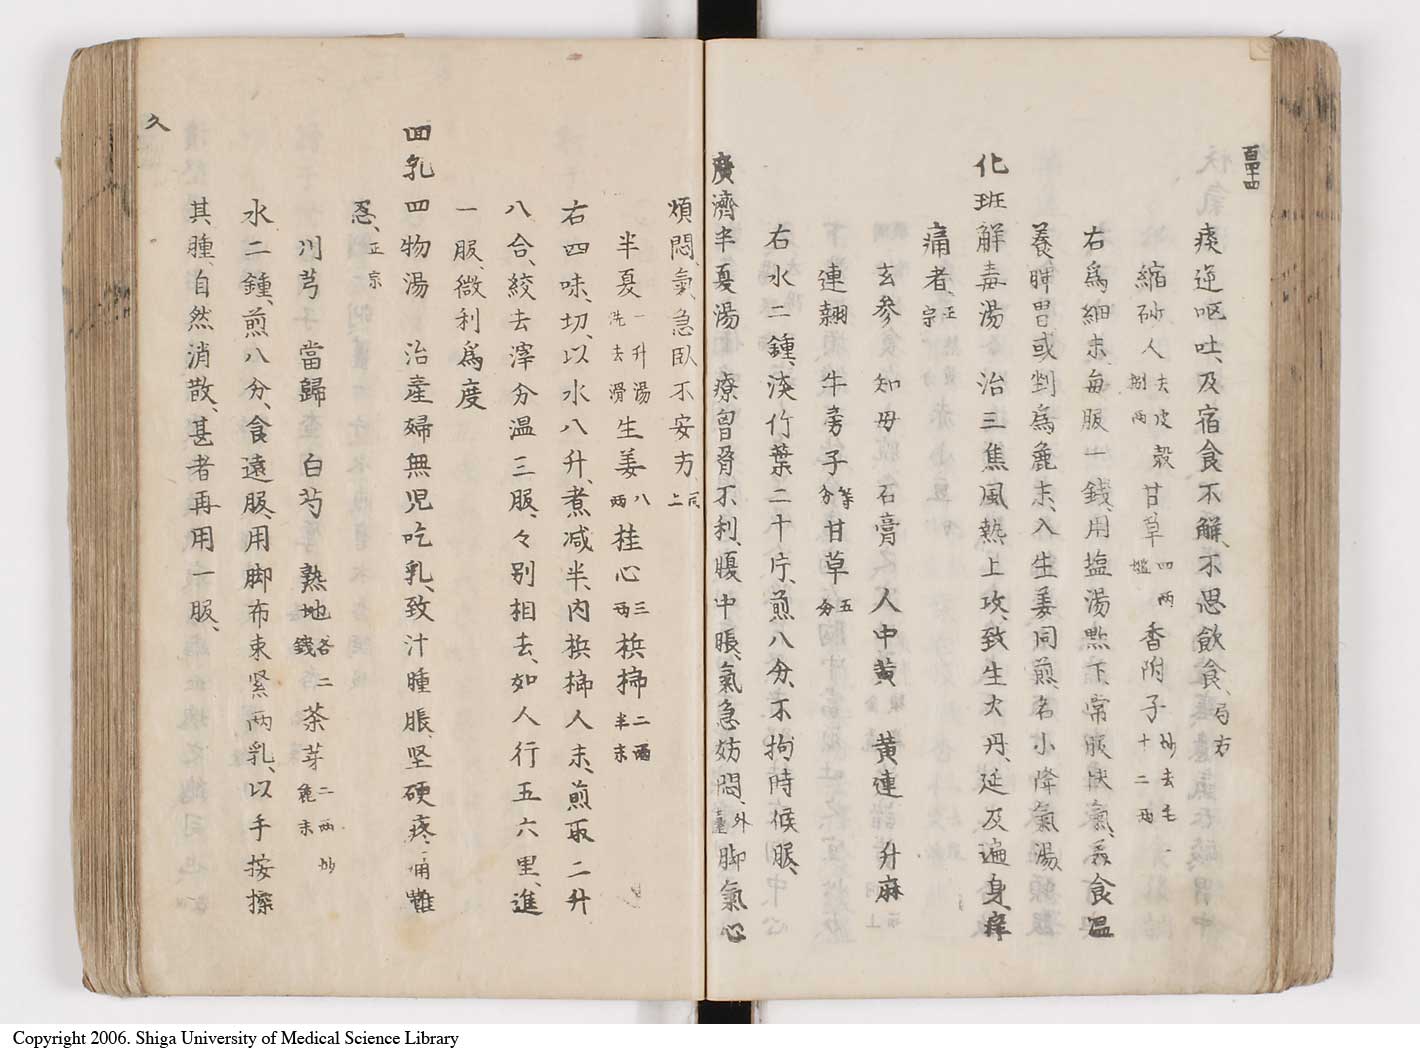 百四十四
痰逆呕吐、及宿食不解、不思飲食、局方
縮砂人去皮捌两穀甘草四两𬋖香附子炒去毛十二两
右爲細末、每服一錢、用塩湯點下常服伏氣、蒸食温
養脾胃或剉爲麁末、入生姜同煎、名小降氣湯
化班解毒湯 治三焦風熱上攻、致生火丹、延及遍身、痒
痛者、正宗
玄參 知母 石膏 人中黄 黄連 升麻
連翹 牛房子等分甘草五分
右水二鍾、淡竹葉二十片、煎八分、不拘時候服、
廣濟半夏湯 療胷脅不利、腹中脹、氣急妨悶、外臺脚氣心
煩悶、氣急臥不安方、同上
半夏一升湯洗去滑生姜八两桂心三两梹榔二两半末
右四味、切、以水八升、煮减半、内梹榔人末、煎取二升
八合、絞去滓分温三服、々别相去、如人行五六里、進
一服、微利爲度
回乳四物湯 治産婦無児吃乳、致汁腫脹、坚硬疼痛難
忍、正宗
川芎 當歸 白芍 熟地各二錢茶芽二两炒麁末
水二鍾、煎八分、食遠服、用脚布束紧两乳、以手按揉
其腫、自然消散、甚者再用一服、
久
Copyright 2006. Shiga University of Medical Science Library